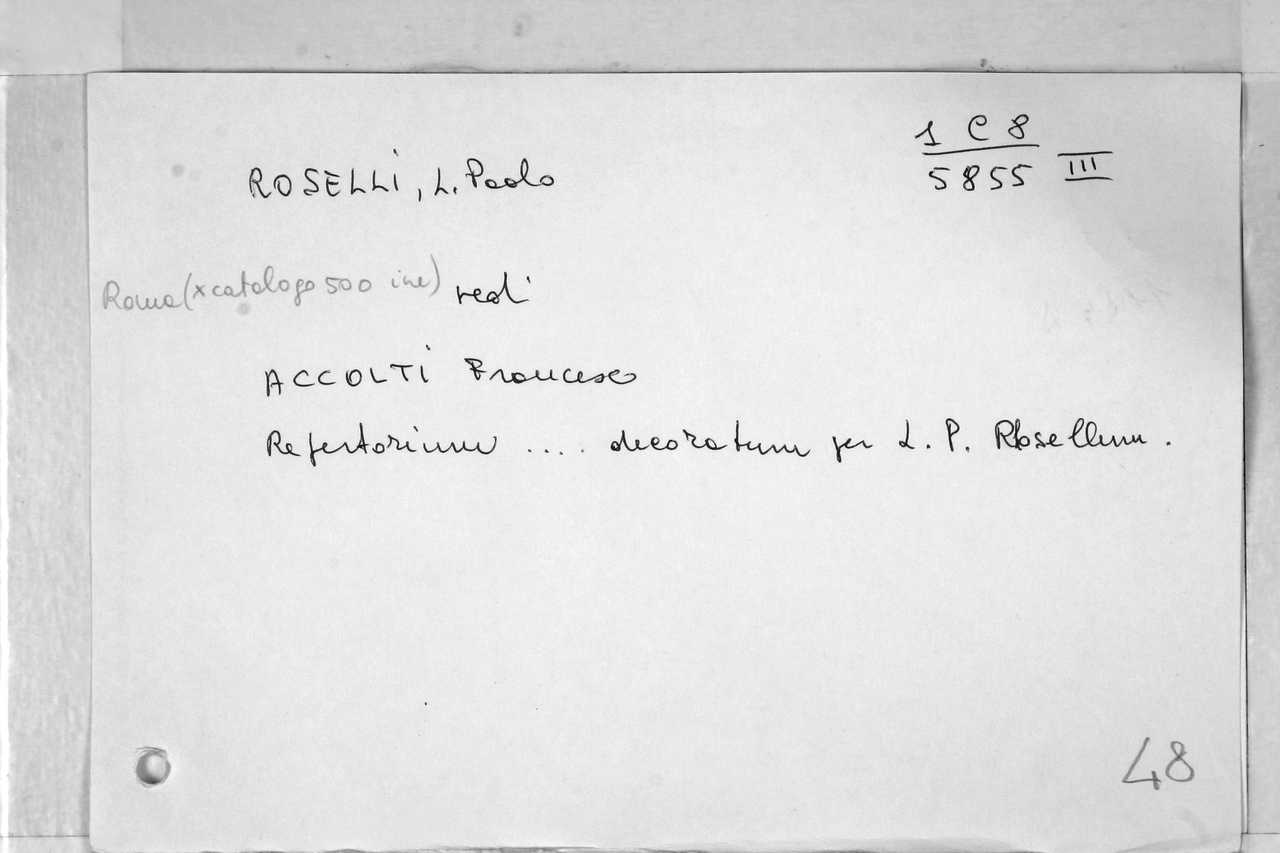 1 C 8
5855 III
ROSELLI, L. Paolo
Roma (x catalogo 500 ine) vedi
ACCOLTI Francesco
Repertorium .... decoratum per L. P. Rosellum.
48